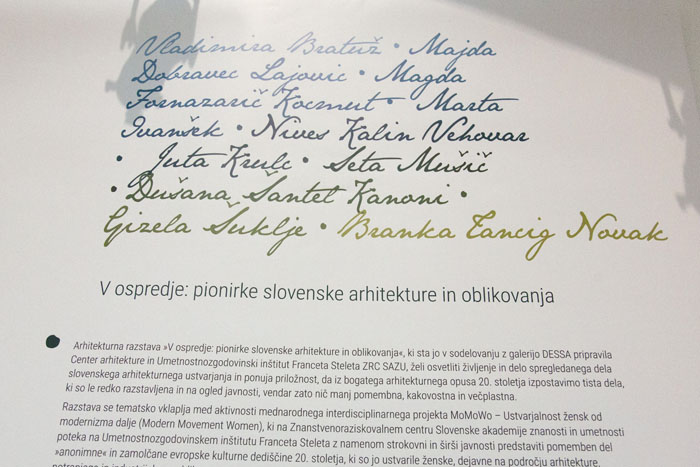 Vladimira Bratuž • Majda
Dobravec Lajovic • Magda
Fornazarič Kocmut • Marta
Ivanšek • Nives Kalin Vehovar
• Juta Krulc • Seta Mušič
• Dušana Šantel Kanoni •
Gizela Šuklje • Branka Tancig Novak
V ospredje: pionirke slovenske arhitekture in oblikovanja
Arhitekturna razstava »V ospredje: pionirke slovenske arhitekture in oblikovanja«, ki sta jo v sodelovanju z galerijo DESSA pripravila
Center arhitekture in Umetnostnozgodovinski inštitut Franceta Steleta ZRC SAZU, želi osvetliti življenje in delo spregledanega dela
slovenskega arhitekturnega ustvarjanja in ponuja priložnost, da iz bogatega arhitekturnega opusa 20. stoletja izpostavimo tista dela,
ki so le redko razstavljena in na ogled javnosti, vendar zato nič manj pomembna, kakovostna in večplastna.
Razstava se tematsko vklaplja med aktivnosti mednarodnega interdisciplinarnega projekta MoMoWo – Ustvarjalnost žensk od
modernizma dalje (Modern Movement Women), ki na Znanstvenoraziskovalnem centru Slovenske akademije znanosti in umetnosti
poteka na Umetnostnozgodovinskem inštitutu Franceta Steleta z namenom strokovni in širši javnosti predstaviti pomemben del
»anonimne« in zamolčane evropske kulturne dediščine 20. stoletja, ki so jo ustvarile ženske, dejavne na področju arhitekture,